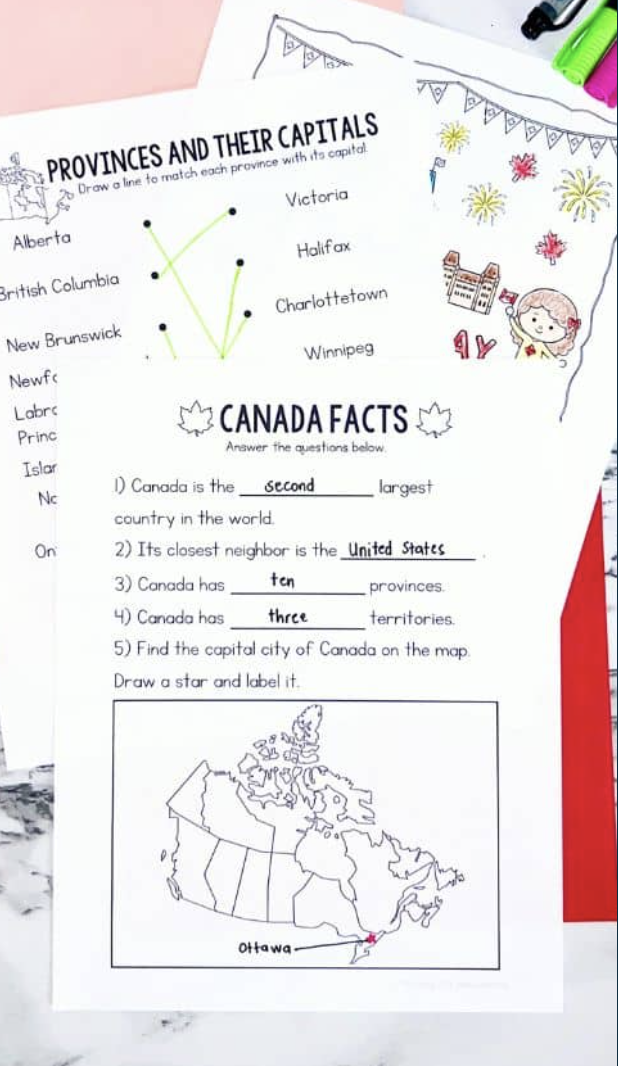 PROVINCES AND THEIR CAPITALS
Draw a line to match each province with its capital.
Alberta
Victoria
British Columbia
Halifax
New Brunswick
Charlottetown
Winnipeg
CANADA FACTS
Answer the questions below.
1) Canada is the second largest
country in the world.
2) Its closest neighbor is the United States.
3) Canada has ten provinces.
4) Canada has three territories.
5) Find the capital city of Canada on the map.
Draw a star and label it.
Ottawa